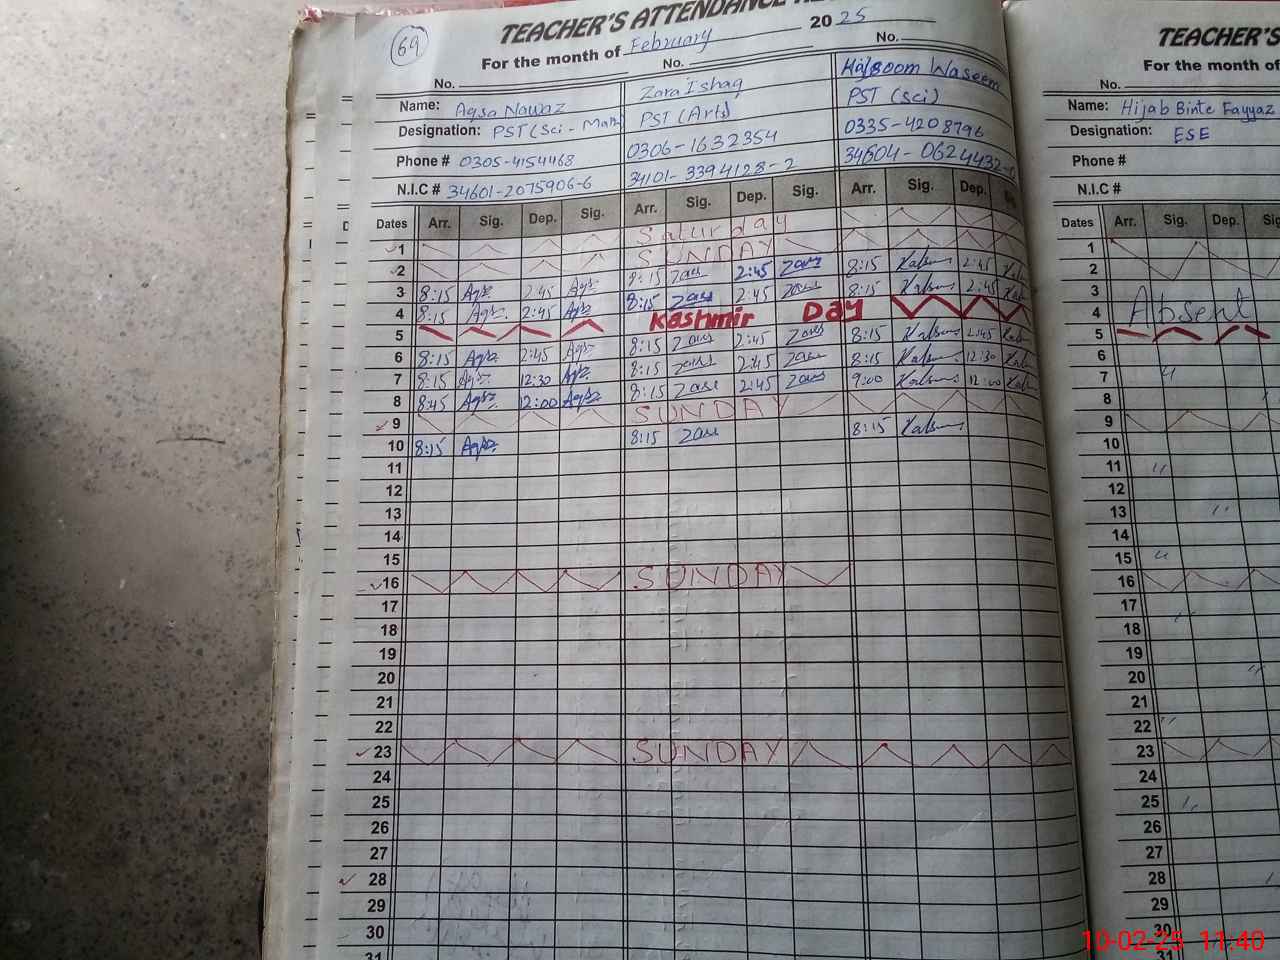 69
TEACHER'S ATTENDANCE
For the month of February 2025
No. No. No.
Name: Aqsa Nawaz Zara Ishaq Waseem
Designation: PST (Sci - Math) PST (Arts) PST (Sci)
Phone # 0305-4154468 0306-1632354 0335-4208796
N.I.C # 34601-2075906-6 34101-3394128-2 34604-0624432-
Dates Arr. Sig. Dep. Sig. Arr. Sig. Dep. Sig. Arr. Sig. Dep. Sig.
1 Saturday
2 SUNDAY
3 8:15 Aqsa 2:45 Aqsa 8:15 Zara 2:45 Zara 8:15 Kalsum 2:45
4 8:15 Aqsa 2:45 Aqsa 8:15 Zara 2:45 Zara 8:15 Kalsum 2:45
5 Kashmir Day
6 8:15 Aqsa 2:45 Aqsa 8:15 Zara 2:45 Zara 8:15 Kalsum 2:45
7 8:15 Aqsa 12:30 Aqsa 8:15 Zara 2:45 Zara 8:15 Kalsum 12:30
8 8:45 Aqsa 12:00 Aqsa 8:15 Zara 2:45 Zara 9:00 Kalsum 12:00
9 SUNDAY
10 8:15 Aqsa 8:15 Zara 8:15 Kalsum
11
12
13
14
15
16 SUNDAY
17
18
19
20
21
22
23 SUNDAY
24
25
26
27
28
29
30
31
TEACHER'S
For the month of
No.
Name: Hijab Binte Fayyaz
Designation: ESE
Phone #
N.I.C #
Dates Arr. Sig. Dep. Sig.
1
2
3
4 Absent
5
6
7 "
8 "
9
10
11 "
12
13 "
14
15 "
16
17 "
18
19
20 "
21
22 "
23
24
25 "
26
27
28 "
29
30
31
10-02-25 11:40